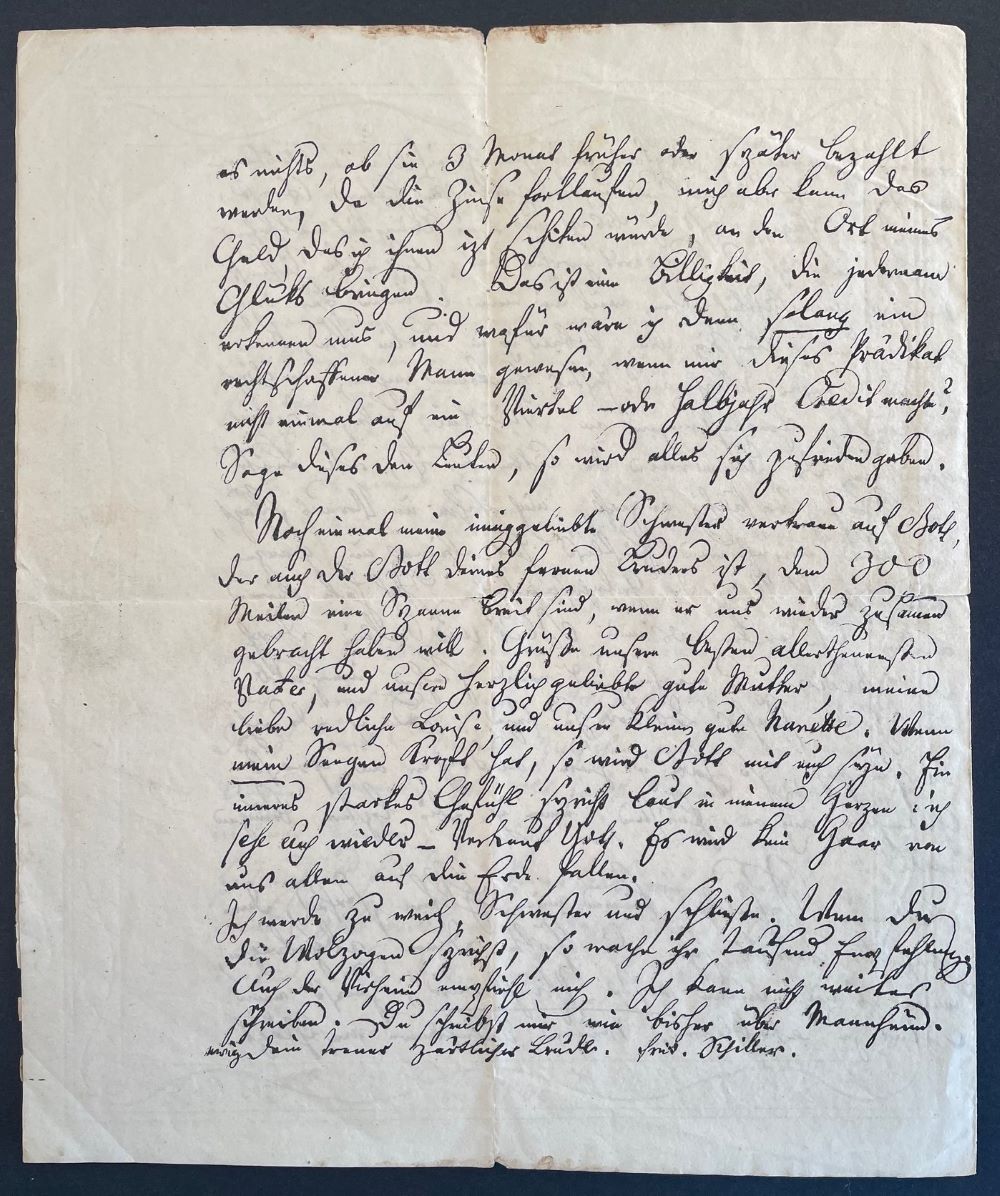 es nichts, ob sie 3 Monat früher oder später bezahlt
werden, da die Zinse fortlaufen, mich aber kann das
Geld das ich ihnen izt schiken würde, an den Ort meines
Glüks bringen. Das ist eine Billigkeit, die jedermann
erkennen mus, und wofür wäre ich denn solang ein
rechtschaffener Mann gewesen, wenn mir dieses Prädikat
nicht einmal auf ein Viertel – oder Halbjahr Credit machte?
Sage dieses den Leuten, so wird alles sich zufrieden geben.
Noch einmal meine inniggeliebte Schwester vertraue auf Gott,
der auch der Gott deines fernen Bruders ist, dem 300
Meilen eine Spanne breit sind, wenn er uns wieder zusamen
gebracht haben will. Grüße unsern besten allertheuersten
Vater, und unsere herzlich geliebte gute Mutter, meine
liebe redliche Louise, und unsre kleine gute Nanette. Wenn
mein Seegen Kraft hat, so wird Gott mit euch seyn. Ein
inneres starkes Gefühl spricht laut in meinem Herzen: ich
sehe euch wieder – Vertraut Gott. Es wird kein Haar von
uns allen auf die Erde fallen.
Ich werde zu weich, Schwester und schließe. Wenn Du
die Wolzogen sprichst, so mache ihr tausend Empfehlungen
Auch der Vischerin empfiehl mich. Ich kann nicht weiter
schreiben. Du schreibst mir wie bisher über Mannheim.
ewig Dein treuer zärtlicher Bruder. Frid. Schiller.